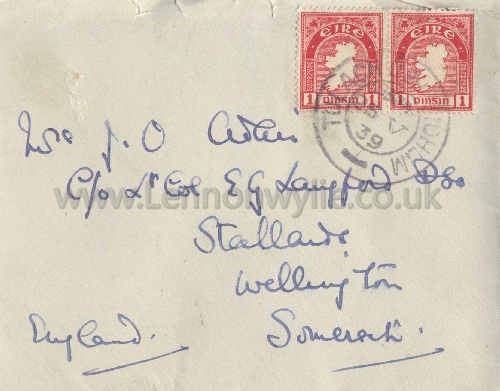 ÉIRE ÉIRE
1 PINGIN 1 1 PINGIN 1
39
Mrs J. O
C/o Lt Col E G Langford DSO
www.Lennonwylie.co.uk
Stallards
Wellington
England. Somerset.